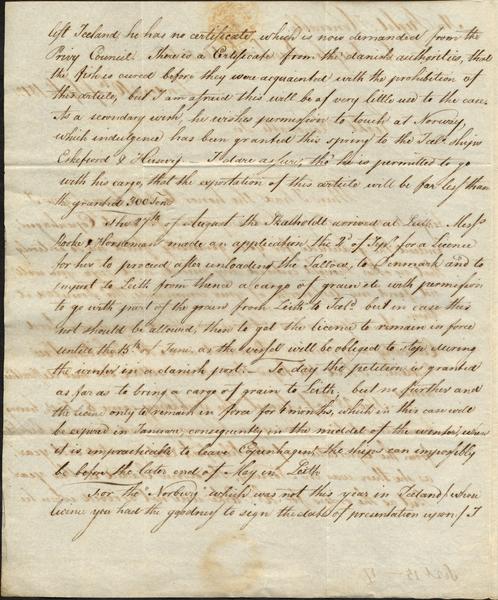 left Iceland he has no certificate, which is now demanded from the
Privy Council. There is a Certificate from the danish authorities, that
the fish is cured before they were acquainted with the prohibition of
this article, but I am afraid this will be of very little use to the case.
As a secondary wish, he wishes permission to touch at Norway,
which indulgence has been granted this spring to the Icel. Ships
Eskefiord & Husevig. I dare assure, tho' he is permitted to go
with his cargo, that the exportation of this article will be far less than
the granted 300 Tons
The 27th of August the Skalholdt arrived at Leith. Messrs
Horne & Horneman made an application the 2d of Sept. for a Licence
for her to proceed after unloading the Tallow, to Denmark and to
import to Leith from thence a cargo of grain etc with permission
to go with part of the grain from Leith to Icel. but in case this
not should be allowed, then to get the licence to remain in force
untill the 15th of June, as the vessel will be obliged to stop during
the winter in a danish port. To day the petition is granted
as far as to bring a cargo of grain to Leith, but no further and
the licence only to remain in force for 4 months, which in this case will
be expired in January, consequently in the middel of the winter, when
it is impracticable to leave Copenhagen, the ships can impossibly
be before the later end of May in Leith
For the "Norburg" which was not this year in Iceland (whose
licence you had the goodness to sign the date of presentation upon) I